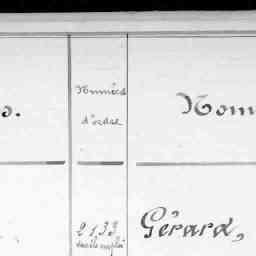 o.
Numéros
d'ordre
Nom
2133
Gérard,